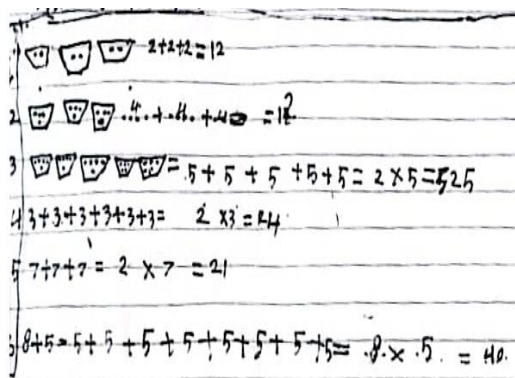 2+2+2=12
2 4+4+4= =12
3 =5+5+5+5+5=2×5=525
4 3+3+3+3+3+3= 2×3=24
5 7+7+7=2×7=21
8+5=5+5+5+5+5+5+5+5=8×5=40